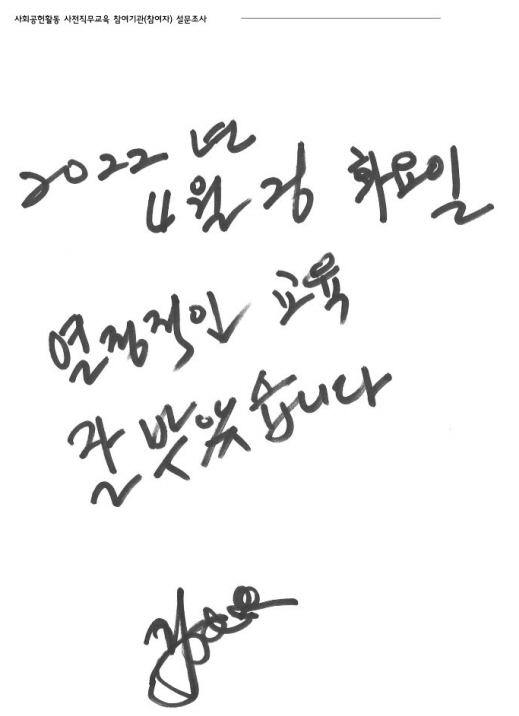 사회공헌활동 사전직무교육 참여기관(참여자) 설문조사
2022 년
4월 화요일
열정적인 교육
잘 받았습니다